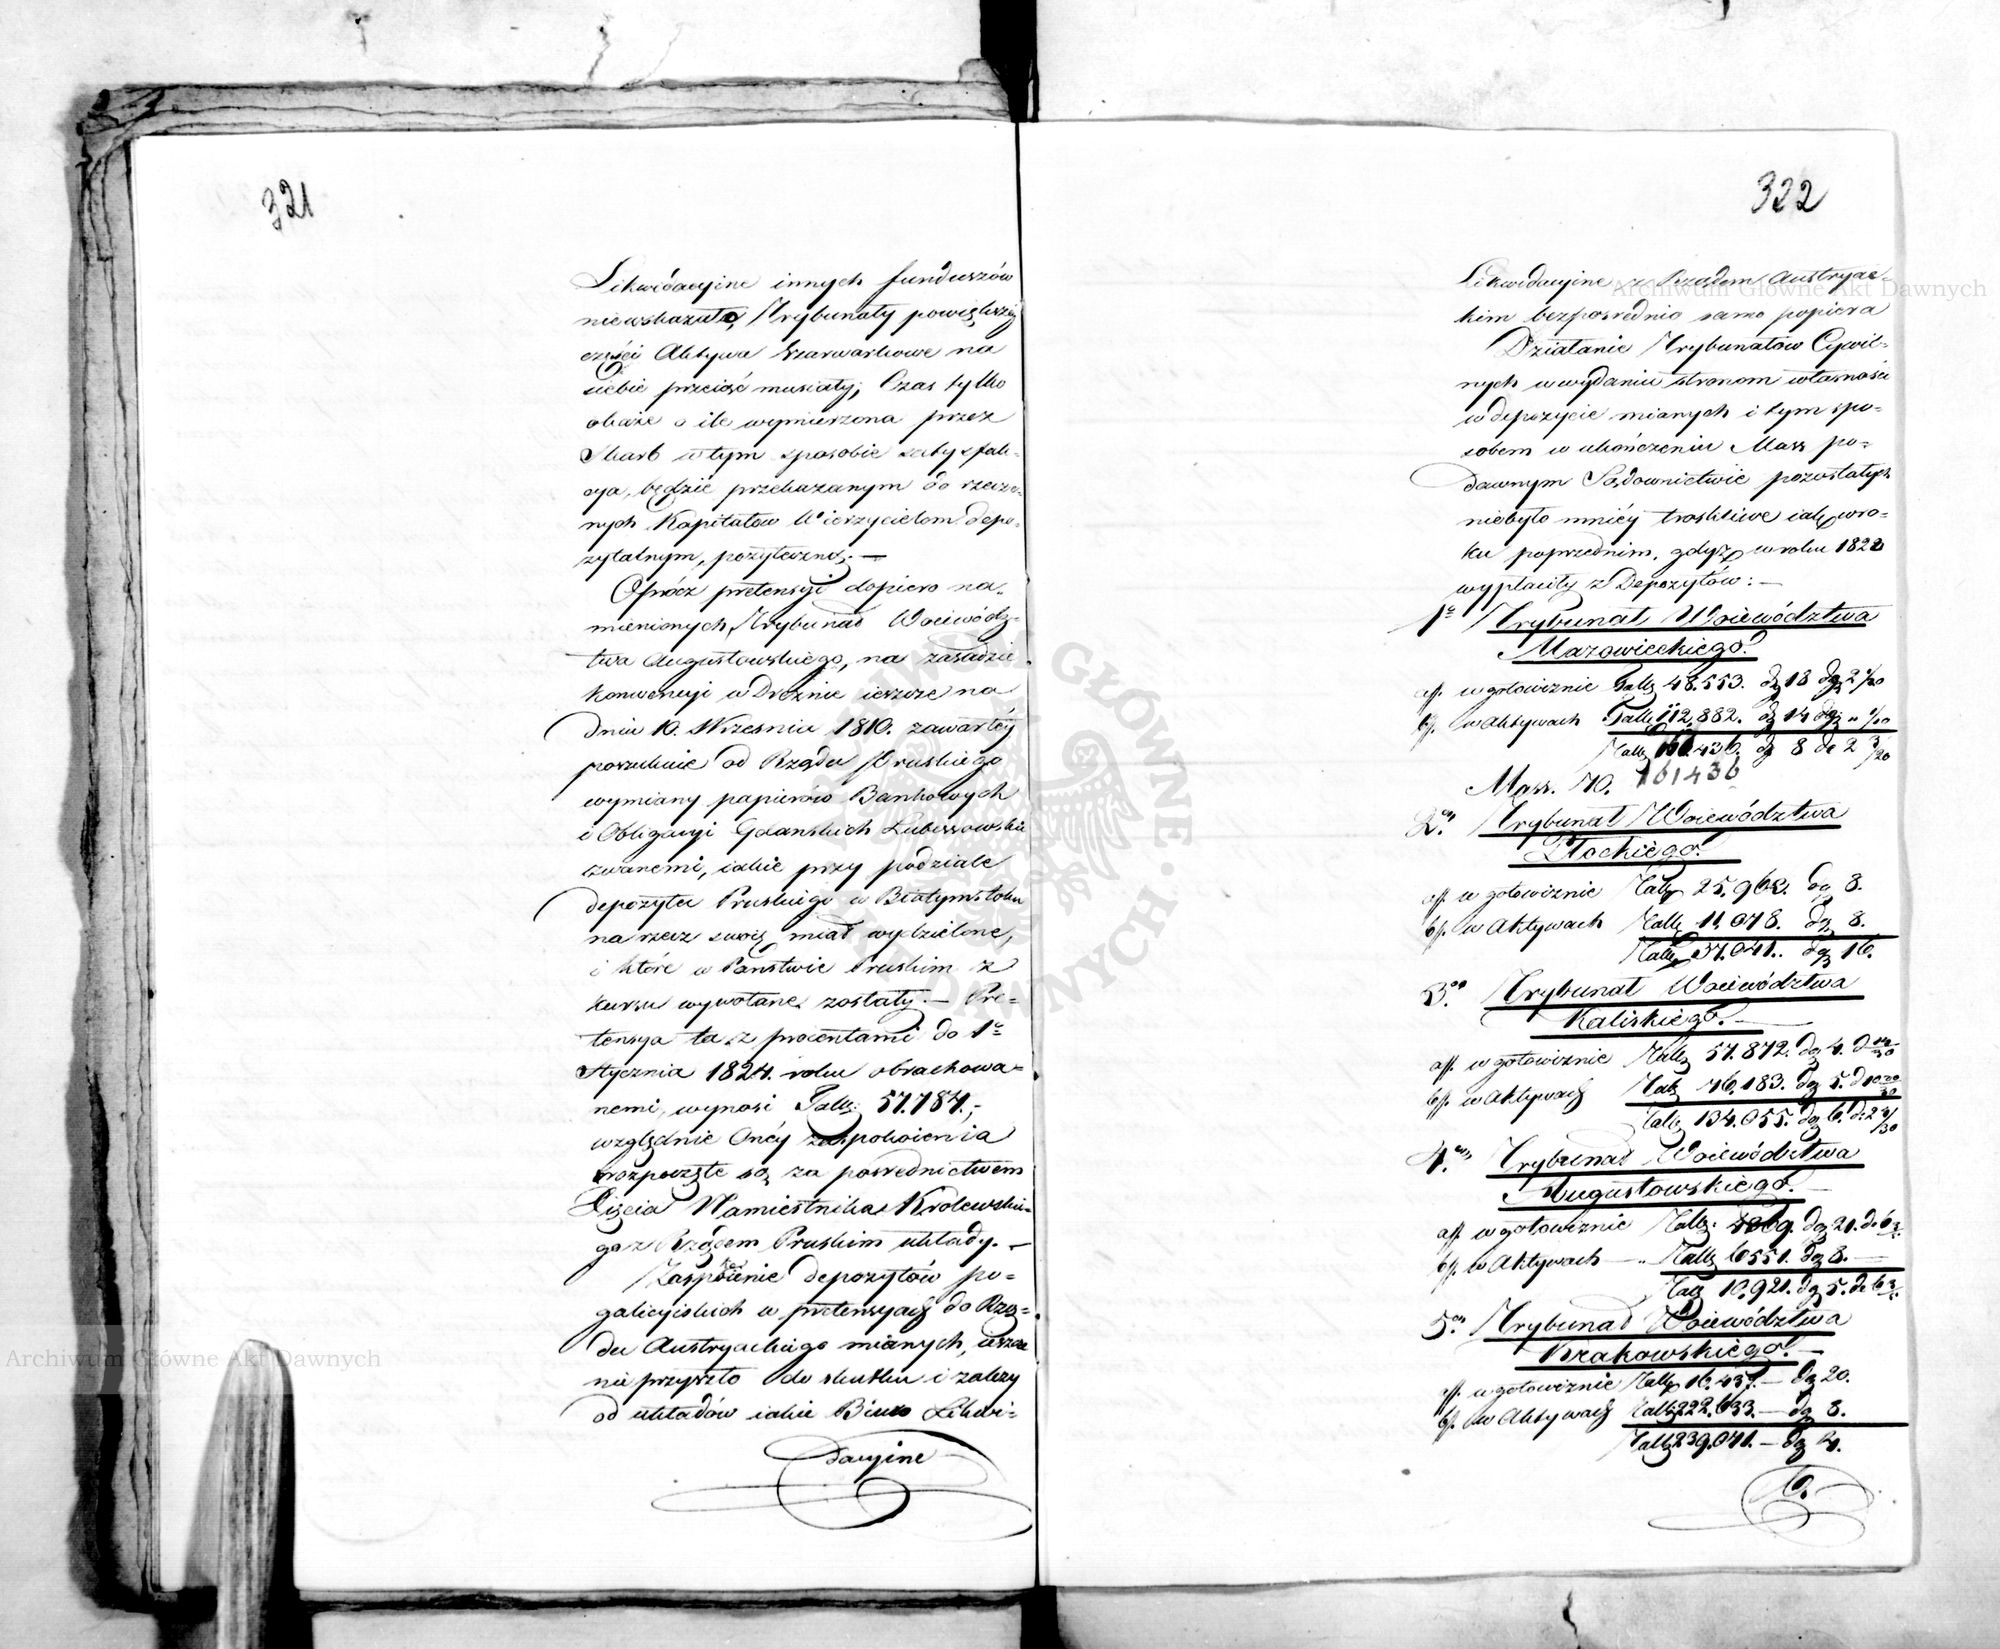 321
Likwidacyine innych funduszów
niewskazało, Trybunały powiększéy
części Aktywa Szarwarkowe na
siebie przeiąć musiały; Czas tylko
okaże o ile wymierzona przez
Skarb w tym sposobie satysfak-
cya, będzie przekazanym do rzeczo-
nych Kapitałów Wierzycielom depo-
zytalnym, pożyteczną. —
Oprócz pretensyi dopiero na-
mienionych, Trybunał Woiewódz-
twa Augustowskiego, na zasadzie
konwencyi w Dreznie ieszcze na
dniu 10. Września 1810. zawartéy
poszukuie od Rządu Pruskiego
wymiany papierów Bankowych
i Obligacyi Gdanskich
zwanemi, iakie przy podziale
depozytu Pruskiego w Białymstoku
na rzecz swoię miał wydzielone,
i które w Państwie Pruskim z
kursu wywołane zostały. — Pre-
tensya ta z procentami do 1o
Stycznia 1824. roku obrachowa-
nemi, wynosi Tall: 57.787.,-
względnie Onéy zaspokoienia
rozpoczęte są za posrednictwem
Xięcia Namiestnika Krolewskie-
go z Rządem Pruskim układy. —
Zaspokoienie depozytów po-
galicyiskich w pretensyach do Rzą-
du Austryackiego mianych, ieszcze
nie przyszło do skutku i zależy
od układów iakie Biuro Likwi-
dacyine
322
Likwidacyine z Rządem Austryac-
kim bezposrednio samo popiera
Działanie Trybunałów Cywil-
nych w wydaniu stronom własności
w depozycie mianych i tym spo-
sobem w ukończeniu Mass po-
dawnym Sądownictwie pozostałych
niebyło mniéy troskliwe iak w ro-
ku poprzednim, gdyż w roku 1822
wypłaciły z Depozytów: —
1o Trybunał Woiewództwa
Mazowieckiego.
a/. w gotowiznie Tall 48.553. dg 18 dg 2 4/20
b/. w Aktywach Tall 112,882. dg 14 dg „ 1/10
Tall 161.436. dg 8 de 2 3/20
Mass. 70. 161436
2o Trybunał Woiewództwa
Płockiego.
a/. w gotowiznie Tall 25.963. dg 8.
b/. w Aktywach Tall 11,078. dg 8.
Tall 37.041. dg 16.
3o Trybunał Woiewództwa
Kaliskiego. —
a/. w gotowiznie Tall 57.872. dg 4.
b/. w Aktywach Tall 76.183. dg 5.
Tall 134.055. dg 6.
4o Trybunał Woiewództwa
Augustowskiego. —
a/. w gotowiznie Tall: dg 21.
b/. w Aktywach — Tall 6551. dg 8. —
Tall 10.921. dg 5.
5o Trybunał Woiewództwa
Krakowskiego. —
a/. w gotowiznie Tall 16.437. — dg 20.
b/. w Aktywach Tall 222.633. — dg 8.
Tall 239.071. — dg 4.
6.
Archiwum Główne Akt Dawnych
Archiwum Główne Akt Dawnych
ARCHIWUM GŁÓWNE · AKT DAWNYCH ·